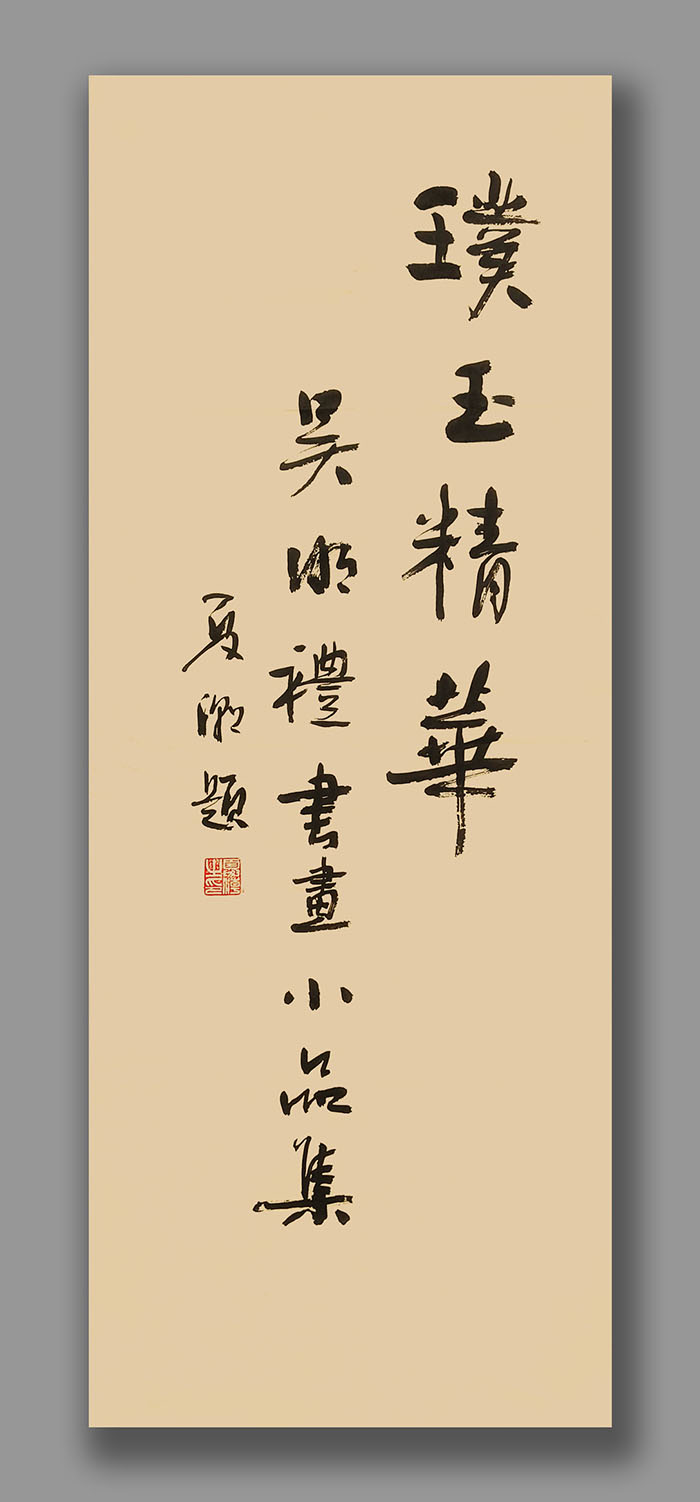 璞玉精華
吳明禮書畫小品集
夏潮題